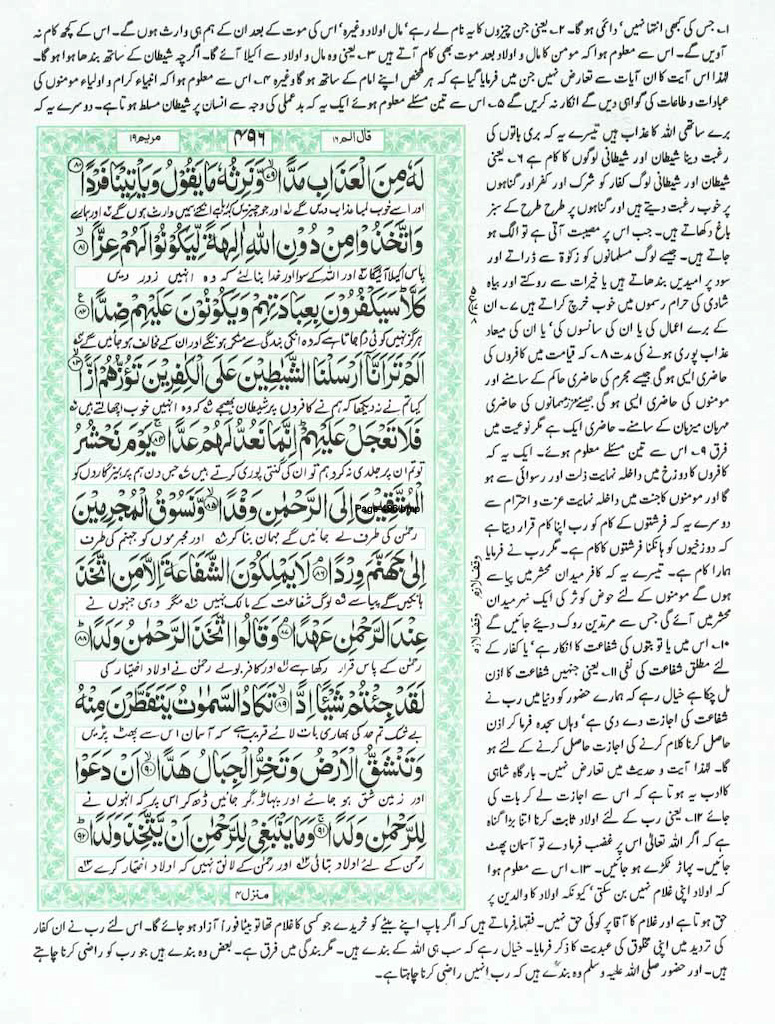 ۱۔ جس کی کبھی انتہا نہیں‘ دائمی ہو گا۔ ۲۔ یعنی جن چیزوں کا یہ نام لے رہے‘ مال اولاد وغیرہ‘ اس کی موت کے بعد ان کے ہم ہی وارث ہوں گے۔ اس کے کچھ کام نہ
آویں گے۔ اس سے معلوم ہوا کہ مومن کا مال و اولاد بعد موت بھی کام آتے ہیں ۳۔ یعنی وہ مال و اولاد سے اکیلا آئے گا۔ اگرچہ شیطان کے ساتھ بندھا ہوا ہو گا۔
لہٰذا اس آیت کا ان آیات سے تعارض نہیں جن میں فرمایا گیا ہے کہ ہر شخص اپنے امام کے ساتھ ہو گا وغیرہ ۴۔ اس سے معلوم ہوا کہ انبیاء کرام و اولیاء مومنوں کی
عبادات و طاعات کی گواہی دیں گے انکار نہ کریں گے ۵۔ اس سے تین مسئلے معلوم ہوئے ایک یہ کہ بد عملی کی وجہ سے انسان پر شیطان مسلط ہوتا ہے۔ دوسرے یہ کہ
برے ساتھی اللہ کا عذاب ہیں تیسرے یہ کہ بری باتوں کی
رغبت دینا شیطان اور شیطانی لوگوں کا کام ہے ۶۔ یعنی
شیطان اور شیطانی لوگ کفار کو شرک اور کفر اور گناہوں
پر خوب رغبت دیتے ہیں اور گناہوں پر طرح طرح کے سبز
باغ دکھاتے ہیں۔ جب اس پر مصیبت آتی ہے تو الگ ہو
جاتے ہیں۔ جیسے لوگ مسلمانوں کو زکوٰۃ سے ڈراتے اور
سود پر امیدیں بندھاتے ہیں یا خیرات سے روکتے اور بیاہ
شادی کی حرام رسموں میں خوب خرچ کراتے ہیں ۷۔ ان
کے برے اعمال کی یا ان کی سانسوں کی‘ یا ان کی میعاد
عذاب پوری ہونے کی مدت ۸۔ کہ قیامت میں کافروں کی
حاضری ایسی ہو گی جیسے مجرم کی حاضری حاکم کے سامنے اور
مومنوں کی حاضری ایسی ہو گی جیسے معزز مہمانوں کی حاضری
مہربان میزبان کے سامنے۔ حاضری ایک ہے مگر نوعیت میں
فرق ۹۔ اس سے تین مسئلے معلوم ہوئے۔ ایک یہ کہ
کافروں کا دوزخ میں داخلہ نہایت ذلت اور رسوائی سے ہو
گا اور مومنوں کا جنت میں داخلہ نہایت عزت و احترام سے
دوسرے یہ کہ فرشتوں کے کام کو رب اپنا کام قرار دیتا ہے
کہ دوزخیوں کو ہانکنا فرشتوں کا کام ہے۔ مگر رب نے فرمایا
ہمارا کام ہے۔ تیسرے یہ کہ کافر میدان محشر میں پیاسے
ہوں گے مومنوں کے لئے حوض کوثر کی ایک نہر میدان
محشر میں آئے گی جس سے مرتدین روک دیئے جائیں گے
۱۰۔ اس میں یا تو بتوں کی شفاعت کا انکار ہے‘ یا کفار کے
لئے مطلق شفاعت کی نفی ۱۱۔ یعنی جنہیں شفاعت کا اذن
مل چکا ہے خیال رہے کہ ہمارے حضور کو دنیا میں رب نے
شفاعت کی اجازت دے دی ہے‘ وہاں سجدہ فرما کر اذن
حاصل کرنا کلام کرنے کی اجازت حاصل کرنے کے لئے ہو
گا۔ لہٰذا آیت و حدیث میں تعارض نہیں۔ بارگاہ شاہی
کا ادب یہ ہوتا ہے کہ اس سے اجازت لے کر بات کی
جائے ۱۲۔ یعنی رب کے لئے اولاد ثابت کرنا اتنا بڑا گناہ
ہے کہ اگر اللہ تعالیٰ اس پر غضب فرما دے تو آسمان پھٹ
جائیں۔ پہاڑ ٹکڑے ہو جائیں۔ ۱۳۔ اس سے معلوم ہوا
کہ اولاد اپنی غلام نہیں بن سکتی‘ کیونکہ اولاد کا والدین پر
قال الم ۱۶
۴۹۶
مریم ۱۹
لَهٗ مِنَ الْعَذَابِ مَدًّا ۙ۷۹ وَّنَرِثُهٗ مَا یَقُوْلُ وَیَاْتِیْنَا فَرْدًا ۸۰
اور اسے خوب لمبا عذاب دیں گے اور جو چیزیں کہہ رہا ہے انکے ہمیں وارث ہوں گے اور ہمارے
وَاتَّخَذُوْا مِنْ دُوْنِ اللّٰهِ اٰلِهَةً لِّیَكُوْنُوْا لَهُمْ عِزًّا ۙ۸۱
پاس اکیلا آئیگا اور اللہ کے سوا اور خدا بنا لئے کہ وہ انہیں زور دیں
كَلَّا ؕ سَیَكْفُرُوْنَ بِعِبَادَتِهِمْ وَیَكُوْنُوْنَ عَلَیْهِمْ ضِدًّا ۸۲
ہرگز نہیں کوئی دم جاتا ہے کہ وہ انکی بندگی سے منکر ہونگے اور ان کے مخالف ہو جائیں گے
اَلَمْ تَرَ اَنَّاۤ اَرْسَلْنَا الشَّیٰطِیْنَ عَلَی الْكٰفِرِیْنَ تَؤُزُّهُمْ اَزًّا ۙ۸۳
کیا تم نے نہ دیکھا کہ ہم نے کافروں پر شیطان بھیجے کہ وہ انہیں خوب اچھالتے ہیں
فَلَا تَعْجَلْ عَلَیْهِمْ ؕ اِنَّمَا نَعُدُّ لَهُمْ عَدًّا ۚ۸۴ یَوْمَ نَحْشُرُ
تو تم ان پر جلدی نہ کرو ہم تو ان کی گنتی پوری کرتے ہیں جس دن ہم پرہیزگاروں کو
الْمُتَّقِیْنَ اِلَی الرَّحْمٰنِ وَفْدًا ۙ۸۵ وَّنَسُوْقُ الْمُجْرِمِیْنَ
رحمٰن کی طرف لے جائیں گے مہمان بنا کر اور مجرموں کو جہنم کی طرف
اِلٰی جَهَنَّمَ وِرْدًا ۘ۸۶ لَا یَمْلِكُوْنَ الشَّفَاعَةَ اِلَّا مَنِ اتَّخَذَ
ہانکیں گے پیاسے لوگ شفاعت کے مالک نہیں مگر وہی جنہوں نے
عِنْدَ الرَّحْمٰنِ عَهْدًا ۘ۸۷ وَقَالُوا اتَّخَذَ الرَّحْمٰنُ وَلَدًا ؕ۸۸
رحمٰن کے پاس قرار رکھا ہے اور کافر بولے رحمٰن نے اولاد اختیار کی
لَقَدْ جِئْتُمْ شَیْـًٔا اِدًّا ۙ۸۹ تَكَادُ السَّمٰوٰتُ یَتَفَطَّرْنَ مِنْهُ
بے شک تم حد کی بھاری بات لائے قریب ہے کہ آسمان اس سے پھٹ پڑیں
وَتَنْشَقُّ الْاَرْضُ وَتَخِرُّ الْجِبَالُ هَدًّا ۙ۹۰ اَنْ دَعَوْا
اور زمین شق ہو جائے اور پہاڑ گر جائیں ڈھ کر اس پر کہ انہوں نے
لِلرَّحْمٰنِ وَلَدًا ۚ۹۱ وَمَا یَنْۢبَغِیْ لِلرَّحْمٰنِ اَنْ یَّتَّخِذَ وَلَدًا ؕ۹۲
رحمٰن کے لئے اولاد بتائی اور رحمٰن کے لائق نہیں کہ اولاد اختیار کرے
منزل ۴
وقف لازم
وقف لازم
حق ہوتا ہے اور غلام کا آقا پر کوئی حق نہیں۔ فقہا فرماتے ہیں کہ اگر باپ اپنے بیٹے کو خریدے جو کسی کا غلام تھا تو بیٹا فوراً آزاد ہو جائے گا۔ اس لئے رب نے ان کفار
کی تردید میں اپنی مخلوق کی عبدیت کا ذکر فرمایا۔ خیال رہے کہ سب ہی اللہ کے بندے ہیں۔ مگر بندگی میں فرق ہے۔ بعض وہ بندے ہیں جو رب کو راضی کرنا چاہتے
ہیں۔ اور حضور صلی اللہ علیہ وسلم وہ بندے ہیں کہ رب انہیں راضی کرنا چاہتا ہے۔